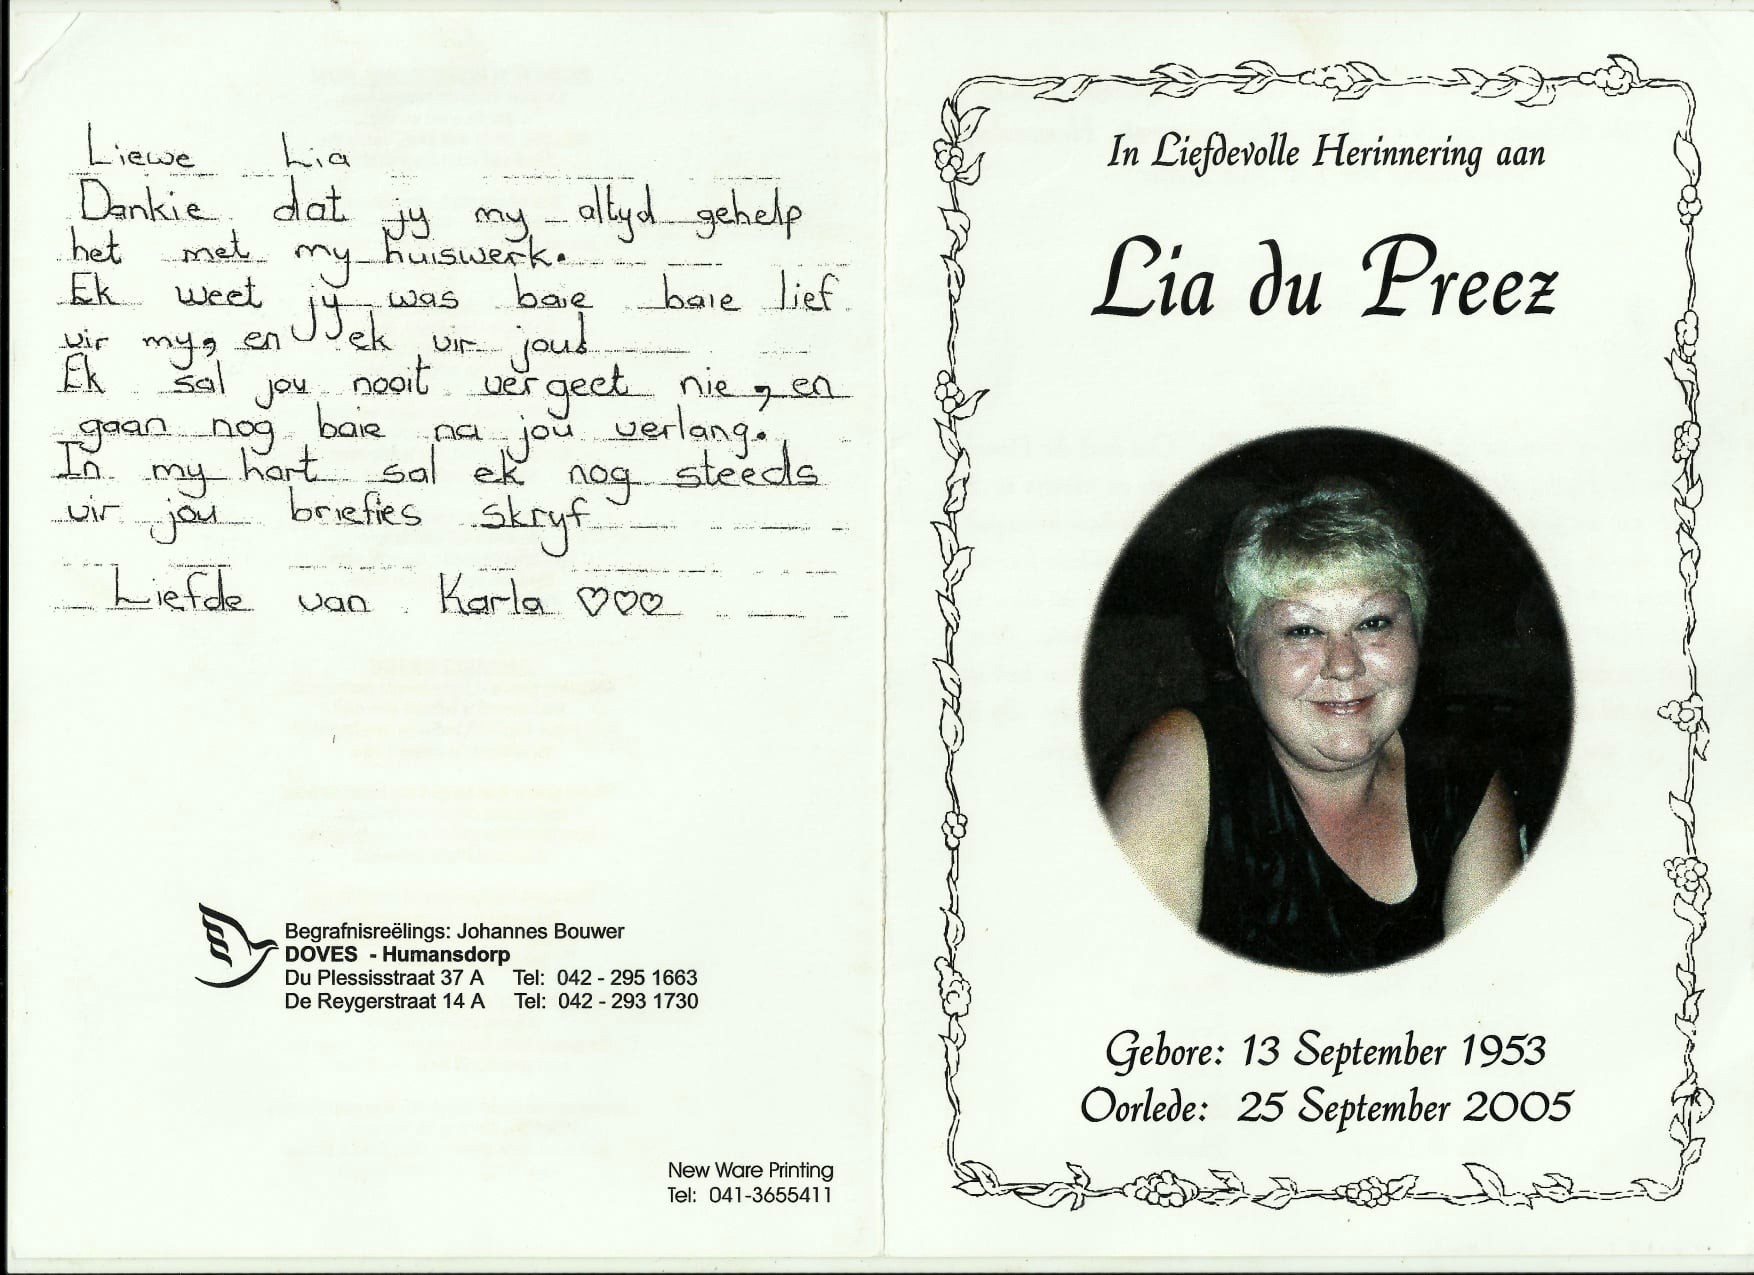 Liewe Lia
Dankie dat jy my altyd gehelp
het met my huiswerk.
Ek weet jy was baie baie lief
vir my, en ek vir jou!
Ek sal jou nooit vergeet nie, en
gaan nog baie na jou verlang.
In my hart sal ek nog steeds
vir jou briefies skryf
Liefde van Karla ♡♡♡
Begrafnisreëlings: Johannes Bouwer
DOVES - Humansdorp
Du Plessisstraat 37 A Tel: 042 - 295 1663
De Reygerstraat 14 A Tel: 042 - 293 1730
New Ware Printing
Tel: 041-3655411
In Liefdevolle Herinnering aan
Lia du Preez
Gebore: 13 September 1953
Oorlede: 25 September 2005